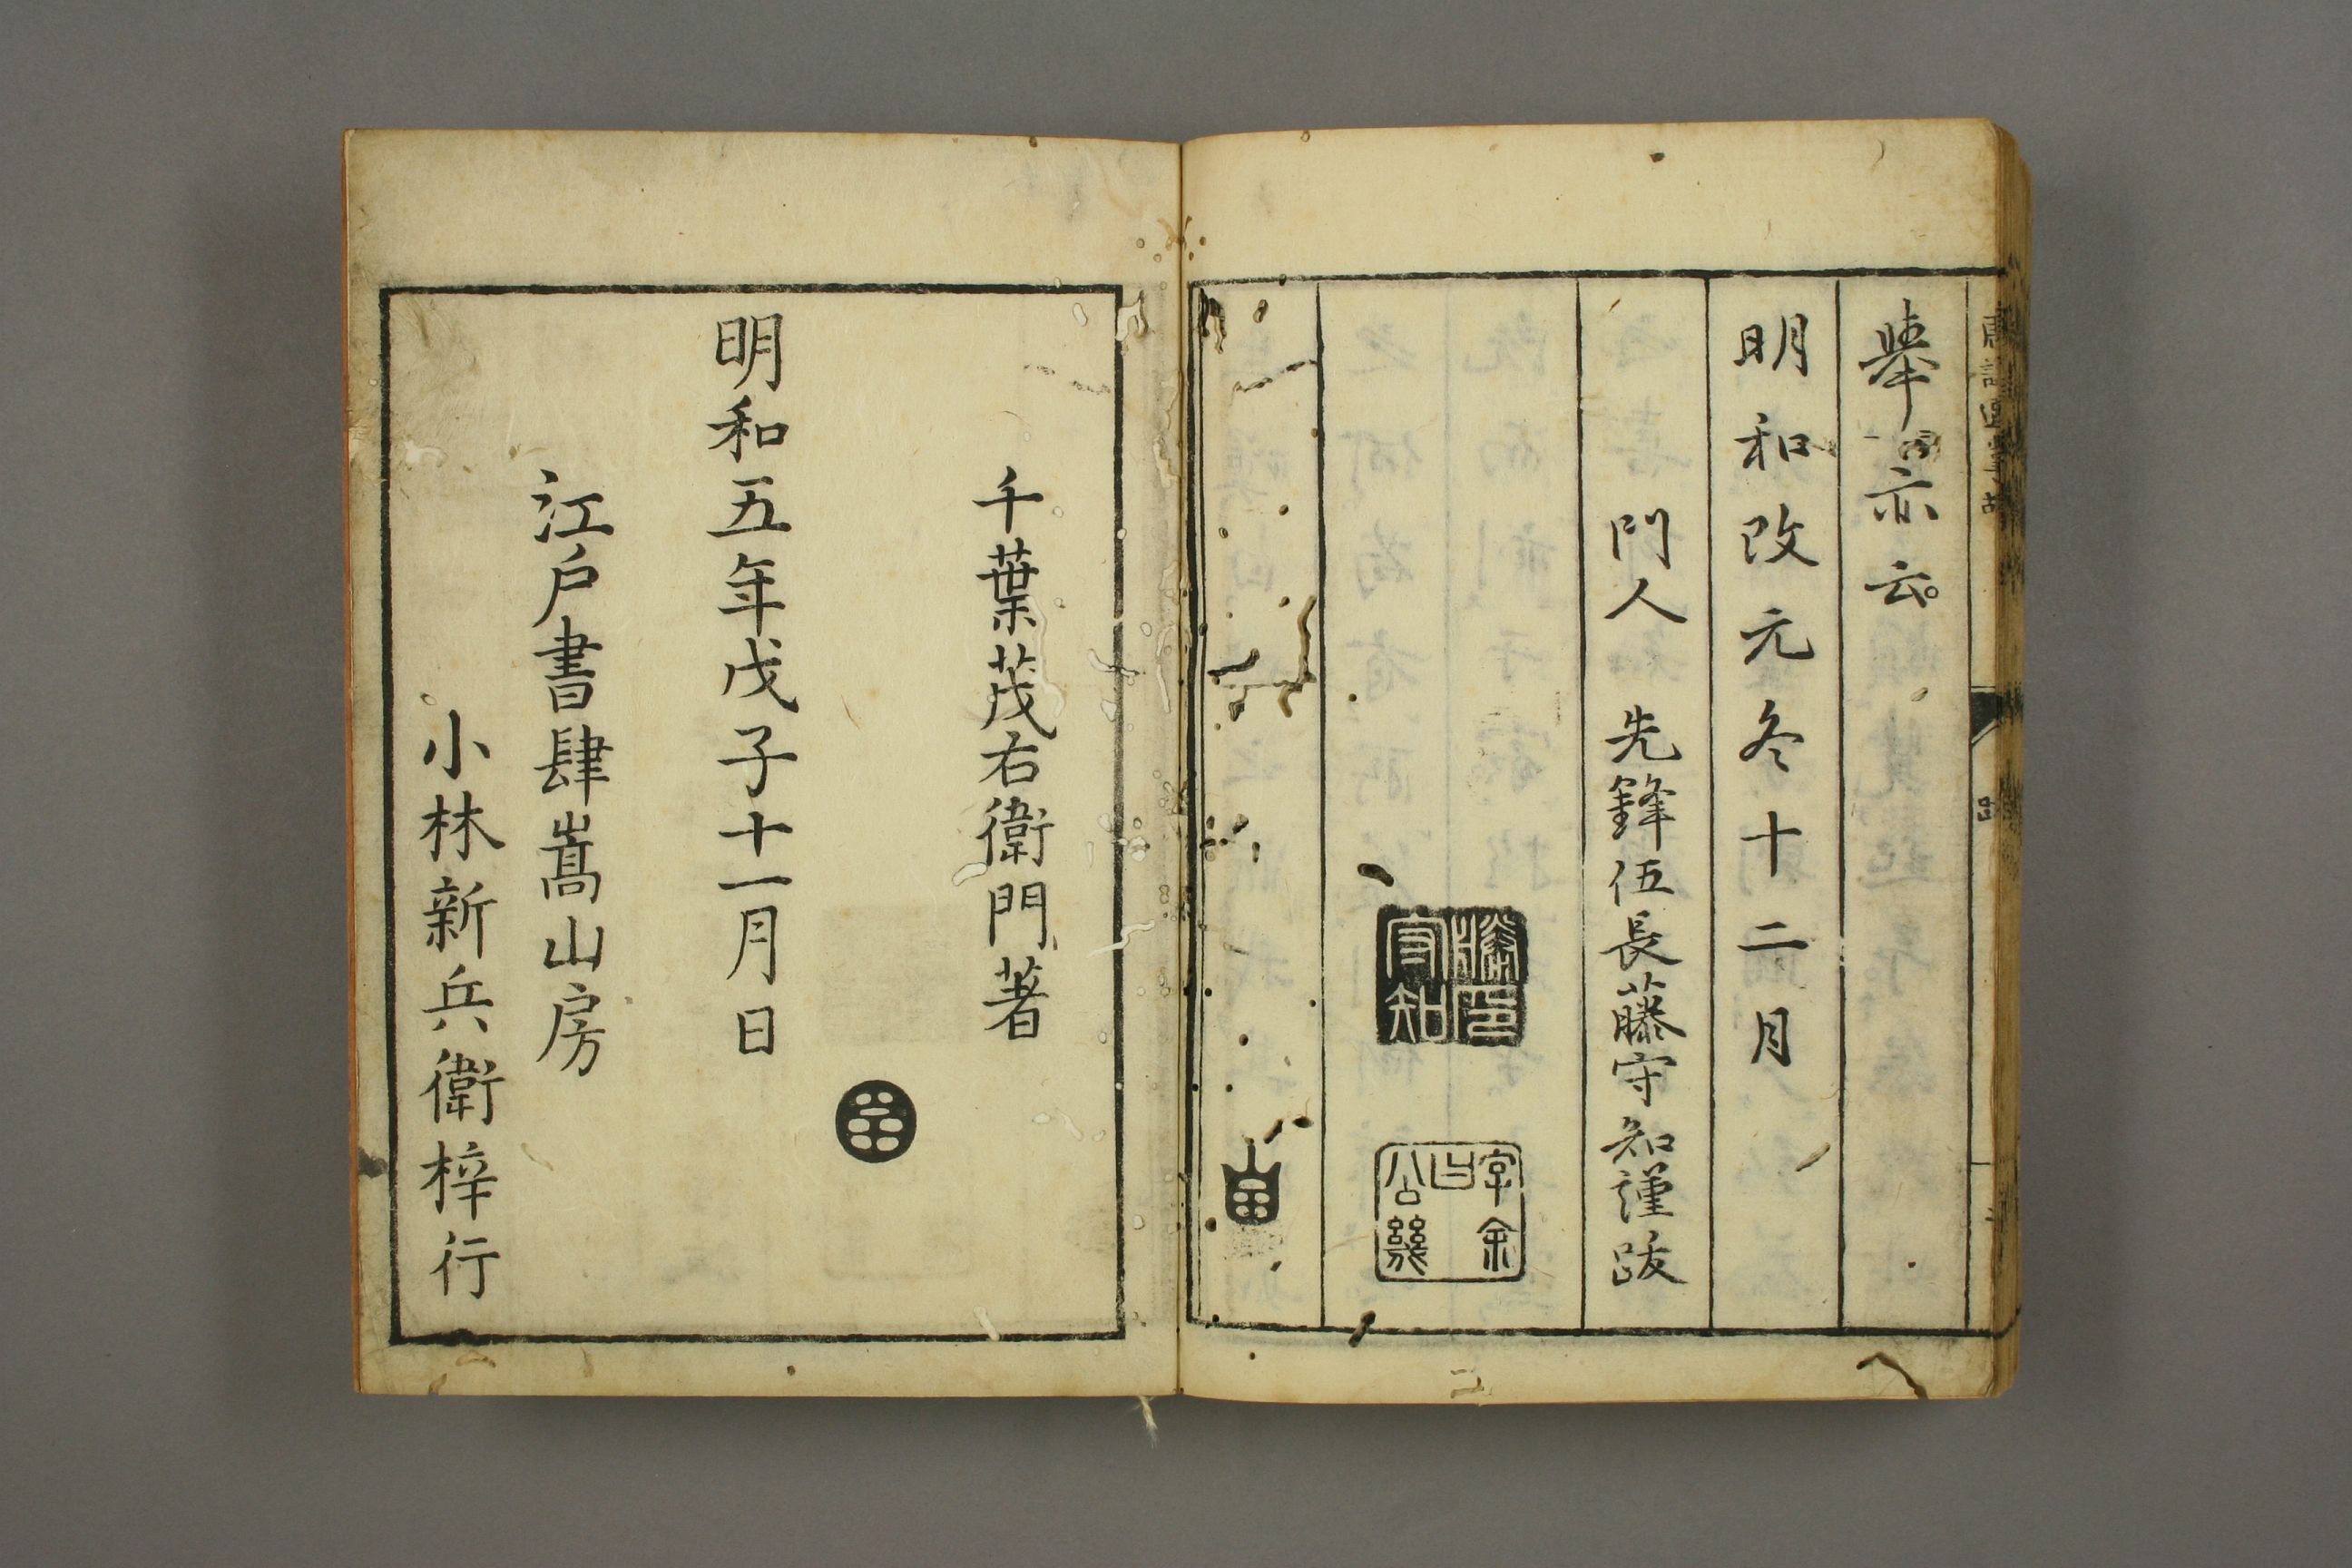 舉亦云。
明和改元冬十二月
門人 先鋒伍長藤守知謹跋
藤印守知
字余曰公幾
千葉茂右衛門著
明和五年戊子十一月日
江戶書肆嵩山房
小林新兵衛梓行